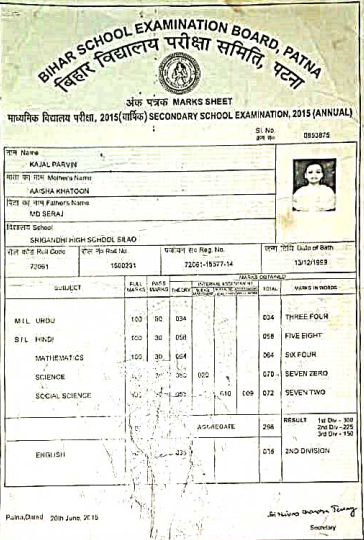 BIHAR SCHOOL EXAMINATION BOARD, PATNA
बिहार विद्यालय परीक्षा समिति, पटना
अंक पत्रक MARKS SHEET
माध्यमिक विद्यालय परीक्षा, 2015 (वार्षिक) SECONDARY SCHOOL EXAMINATION, 2015 (ANNUAL)
Sl. No.
0893875
नाम Name
KAJAL PARVIN
माता का नाम Mother's Name
AAISHA KHATOON
पिता का नाम Father's Name
MD SERAJ
विद्यालय School
SRIGANDHI HIGH SCHOOL SILAO
रोल कोड Roll Code रोल नं० Roll No. पंजीयन सं० Reg. No. जन्म तिथि Date of Birth
72061 1500231 72061-15577-14 13/12/1999
SUBJECT FULL MARKS PASS MARKS THEORY INTERNAL ASSESSMENT MARKS OBTAINED TOTAL MARKS IN WORDS
M I L URDU 100 30 034 034 THREE FOUR
S I L HINDI 100 30 058 058 FIVE EIGHT
MATHEMATICS 100 30 064 064 SIX FOUR
SCIENCE 020 070 SEVEN ZERO
SOCIAL SCIENCE 010 009 072 SEVEN TWO
AGGREGATE 298 RESULT 1st Div - 300
2nd Div - 225
3rd Div - 150
ENGLISH 2ND DIVISION
Patna, Dated 20th June, 2015
Secretary